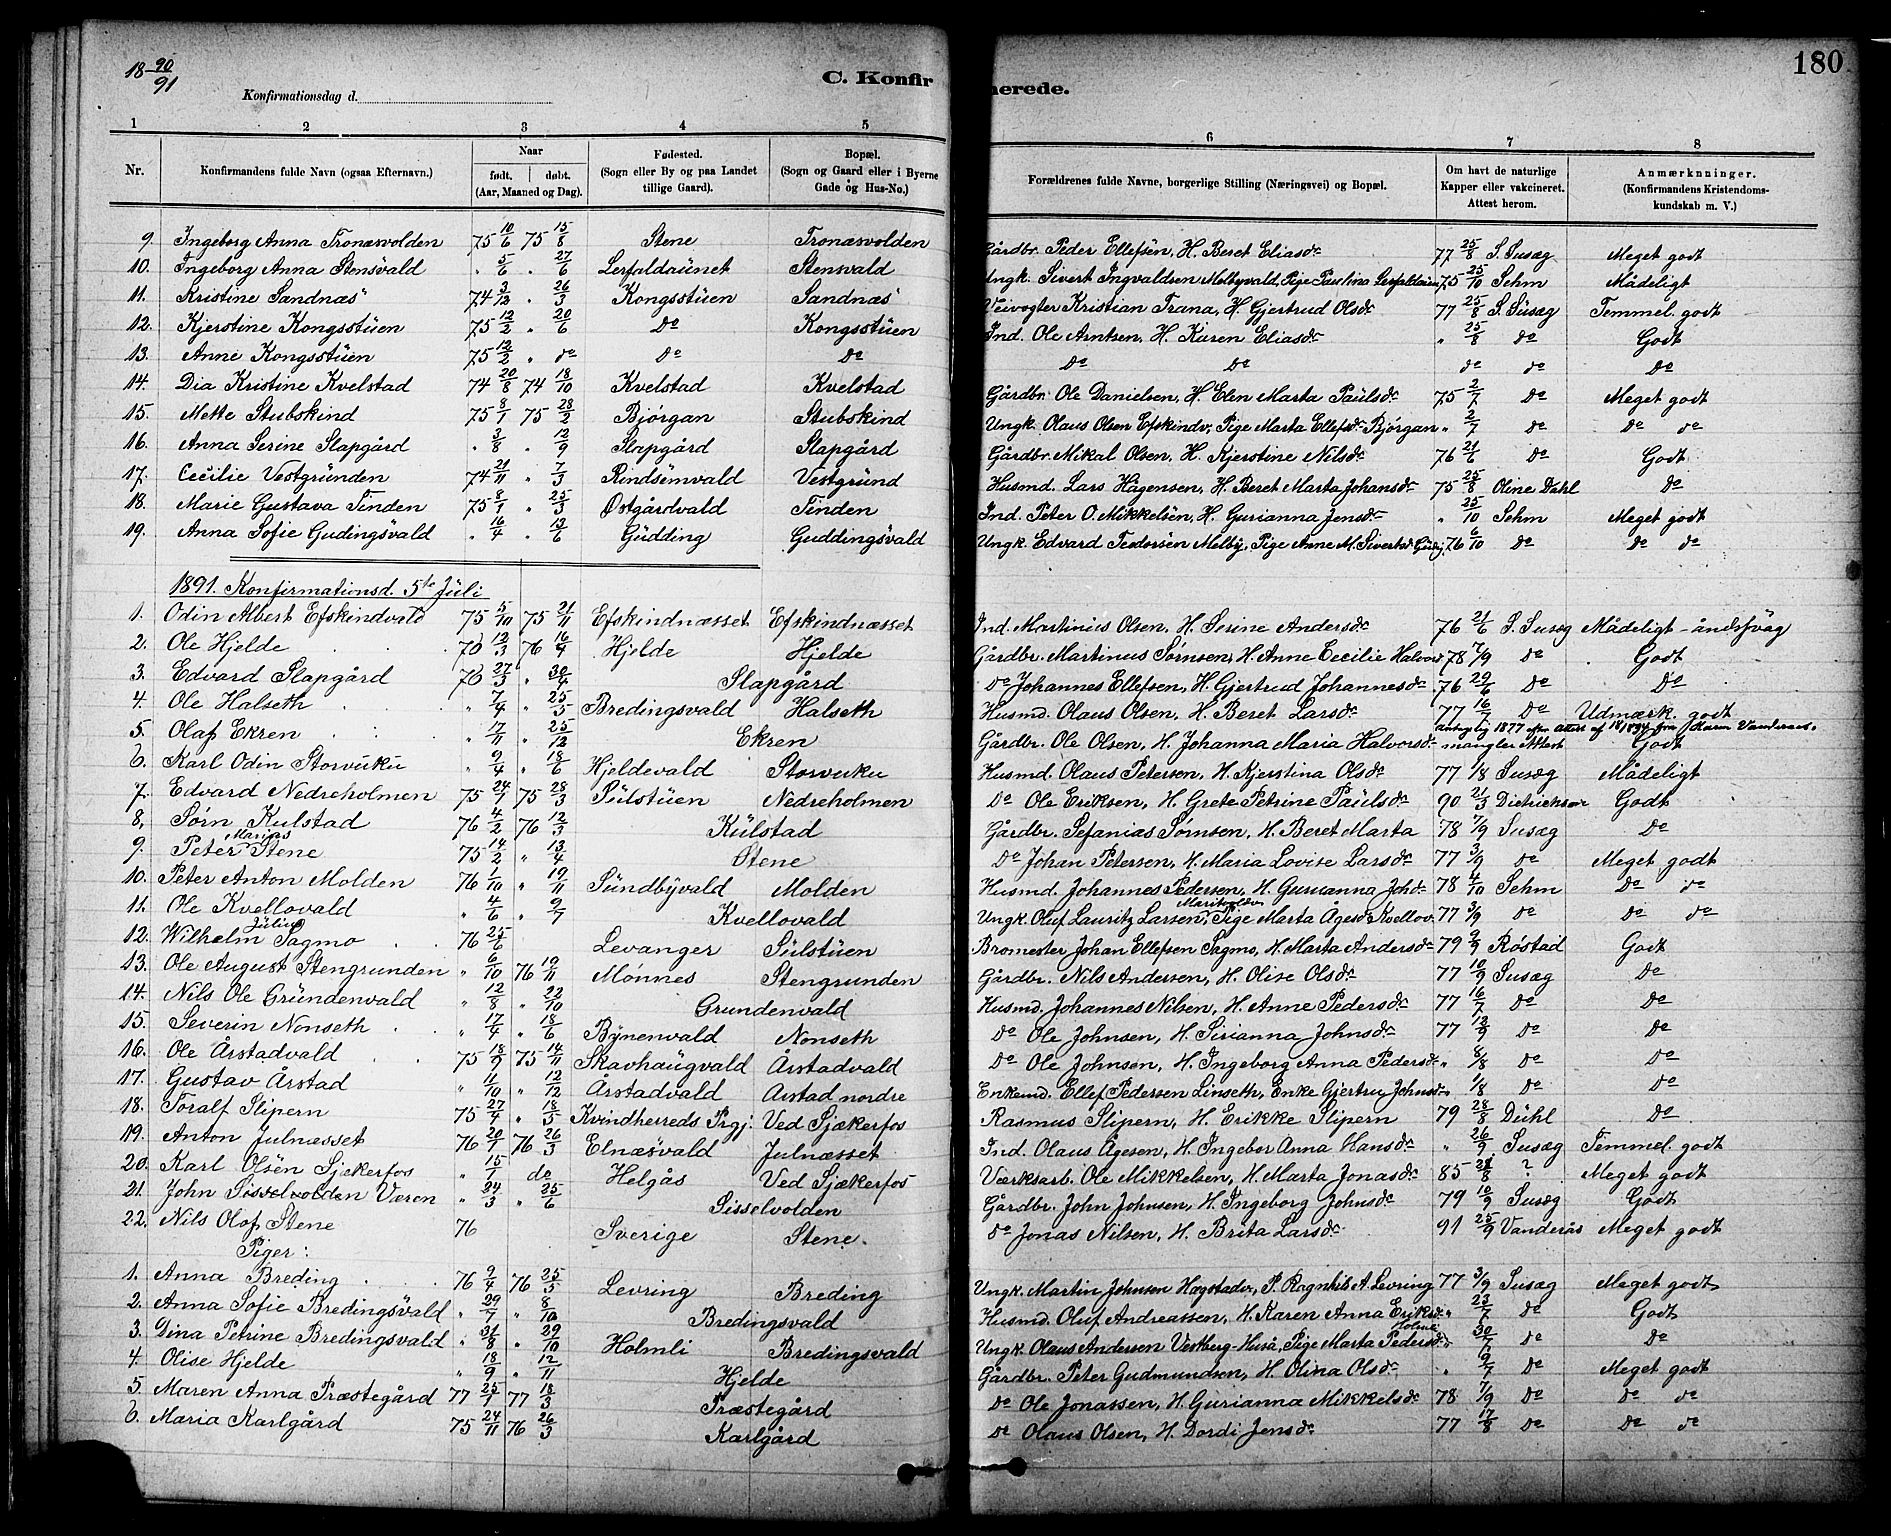 18 90/91
C. Konfir
merede.
180
Konfirmationsdag d.
1 2 3 4 5 6 7 8
Nr. Konfirmandens fulde Navn (ogsaa Efternavn.) Naar født. døbt. (Aar, Maaned og Dag). Fødested. (Sogn eller By og paa Landet tillige Gaard). Bopæl. (Sogn og Gaard eller i Byerne Gade og Hus-No.) Forældrenes fulde Navne, borgerlige Stilling (Næringsvei) og Bopæl. Om havt de naturlige Kopper eller vakcineret. Attest herom. Anmærkninger. (Konfirmandens Kristendomskundskab m. V.)
9. Ingeborg Anna Tronæsvolden 75 10/6 75 15/8 Stene Tronæsvolden Gårdbr. Peder Ellefsen, H. Beret Eliasdr 77 25/8 S. Susæg Meget godt
10. Ingeborg Anna Stensvald " 5/6 " 27/6 Lerfaldaunet Stensvald Ungk. Sivert Ingvaldsen Melbyvald, Pige Paulina Lerfaldaunet 75 25/10 Sehm Mådeligt
11. Kristine Sandnæs 74 3/12 " 26/3 Kongsstuen Sandnæs Veivogter Kristian Trana, H. Gjertrud Olsdr 77 25/8 S. Susæg Temmel. godt
12. Kjerstine Kongsstuen 75 12/2 " 20/6 Do Kongsstuen Ind. Ole Arntsen, H. Karen Eliasdr " 25/8 do Godt
13. Anne Kongsstuen 75 12/2 " do Do Do Do Do do do Do
14. Dia Kristine Kvelstad 74 20/8 74 18/10 Kvelstad Kvelstad Gårdbr. Ole Danielsen, H. Elen Marta Paulsdr 75 2/7 Do Meget godt
15. Mette Stubskind 75 8/1 75 28/2 Bjørgan Stubskind Ungk. Olaus Olsen Efskindv, Pige Marta Ellefsdr Bjørgan " 2/7 do Do do
16. Anna Serine Slapgård " 3/8 " 12/9 Slapgård Slapgård Gårdbr. Mikal Olsen, H. Kjerstine Nilsdr 76 21/6 Do Godt
17. Cecilie Vestgrunden 74 21/11 " 7/3 Rindsemvald Vestgrund Husmd. Lars Hågensen, H. Beret Marta Johansdr 75 25/8 Oline Dahl Do
18. Marie Gustava Tinden 75 8/1 " 25/3 Østgårdvald Tinden Ind. Peter O. Mikkelsen, H. Gurianna Jensdr " 25/10 Sehm Meget godt
19. Anna Sofie Gudingsvald " 16/4 " 13/6 Gudding Guddingsvald Ungk. Edvard Teodorsen Melby, Pige Anne M. Sivertsdr Guding 76 6/10 Do Do do
1891. Konfirmationsd. 5te Juli
1. Odin Albert Efskindvald 75 5/10 75 21/11 Efskindnæsset Efskindnæsset Ind. Martinius Olsen, H. Serine Andersdr 76 21/6 S. Susæg Mådeligt - åndsvag
2. Ole Hjelde 76 12/3 76 16/4 Hjelde Hjelde Gårdbr. Martinus Sørnsen, H. Anne Cecilie Halvorsd 78 7/9 Do Godt
3. Edvard Slapgård 76 27/3 " 30/4 Slapgård Do Johannes Ellefsen, H. Gjertrud Johannesdr 76 29/6 Do Do
4. Ole Halseth " 7/4 " 25/5 Bredingsvald Halseth Husmd. Olaus Olsen, H. Beret Larsdr 77 16/7 Do Udmærk. godt
5. Olaf Ekren " 17/11 " 25/12 Ekren Gårdbr. Ole Olsen, H. Johanna Maria Halvorsdr mangler Attest Godt
6. Karl Odin Storvuku " 9/4 " 18/6 Hjeldevald Storvuku Husmd. Olaus Petersen, H. Kjerstina Olsdr 77 1/8 Susæg Mådeligt
7. Edvard Nedreholmen 75 24/1 75 28/3 Sulstuen Nedreholmen Do Ole Eriksen, H. Grete Petrine Paulsdr 90 21/3 Dietrichson Godt
8. Sørn Kulstad 76 4/2 76 12/3 Kulstad Gårdbr. Sefanias Sørnsen, H. Beret Marta 78 7/9 Susæg Do
9. Peter Marius Stene 75 14/2 " 13/4 Stene Do Johan Petersen, H. Maria Lovise Larsdr 77 3/9 do Meget godt
10. Peter Anton Molden 76 1/10 " 19/11 Sundbyvald Molden Husmd. Johannes Pedersen, H. Gurianna Johdr 78 4/10 Sehm Do do
11. Ole Kvellovald " 4/6 " 9/7 Kvellovald Ungk. Oluf Lauritz Larsen, Pige Marta Ågesdr Kvellov. 77 3/9 do Do do
12. Wilhelm Julius Sagmo 76 25/6 Levanger Sulstuen Bromester Johan Ellefsen Sagmo, H. Marta Andersdr 79 2/9 Røstad Godt
13. Ole August Stengrunden " 6/10 76 19/11 Mønnes Stengrunden Gårdbr. Nils Andersen, H. Olise Olsdr 77 10/9 Susæg Do
14. Nils Ole Grundenvald " 12/8 " 22/10 Grundenvald Husmd. Johannes Nilsen, H. Anne Pedersdr 77 16/7 Do Do
15. Severin Nonseth " 17/4 " 18/6 Bynenvald Nonseth Do Ole Johnsen, H. Sirianna Johnsdr 77 12/9 Do Do
16. Ole Årstadvald 75 18/9 75 14/11 Skavhaugvald Årstadvald Do Ole Johnsen, H. Ingeborg Anna Pedersdr " 8/8 Do Do
17. Gustav Årstad " 11/10 " 12/12 Årstadvald Årstad nordre Enkemd. Ellef Pedersen Linseth, Enke Gjertru Johnsdr " 1/8 Do Do
18. Toralf Slipern 75 27/4 " 18/5 Kvindherreds Prgj. Ved Sjækerfos Rasmus Slipern, H. Erikke Slipern 79 28/8 Duhl Do
19. Anton Julnæsset 76 20/1 76 26/3 Elnæsvald Julnæsset Ind. Olaus Ågesen, H. Ingebor Anna Hansdr " 26/9 Susæg Temmel. godt
20. Karl Olsen Sjækerfos " 15/1 do Helgås Ved Sjækerfos Værksarb. Ole Mikkelsen, H. Marta Jonasdr 85 28/8 ? Meget godt
21. John Sisselvolden Væren " 24/3 " 25/6 Sisselvolden Gårdbr. John Johnsen, H. Ingeborg Johnsdr 79 10/9 Susæg Godt
22. Nils Olaf Stene 76 Sverige Stene. Do Jonas Nilsen, H. Brita Larsdr 91 25/9 Vanderås Meget godt
Piger:
1. Anna Breding 76 9/4 76 25/5 Levring Breding Ungk. Martin Johnsen Hægstadv, P. Ragnhil A. Levring 77 3/9 Susæg Meget godt
2. Anna Sofie Bredingsvald " 29/7 " 8/10 Bredingsvald Husmd. Oluf Andreassen, H. Karen Anna Eriksdr " 23/7 Do Godt
3. Dina Petrine Bredingsvald " 31/8 " 29/10 Holmli Bredingsvald Ungk. Olaus Andersen Vestberg-Huså, Pige Marta Pedersdr Holmli " 30/7 Do Do
4. Olise Hjelde " 18/9 " 12/11 Hjelde Gårdbr. Peter Gudmundsen, H. Olina Olsdr " 9/7 Do Meget godt
5. Maren Anna Præstegård 77 25/1 77 18/3 Præstegård Do Ole Jonassen, H. Gurianna Mikkelsdr 78 7/9 Do Do do
6. Maria Karlgård 75 24/11 76 26/3 Karlgård Do Olaus Olsen, H. Dordi Jensdr 77 17/8 Do Do do